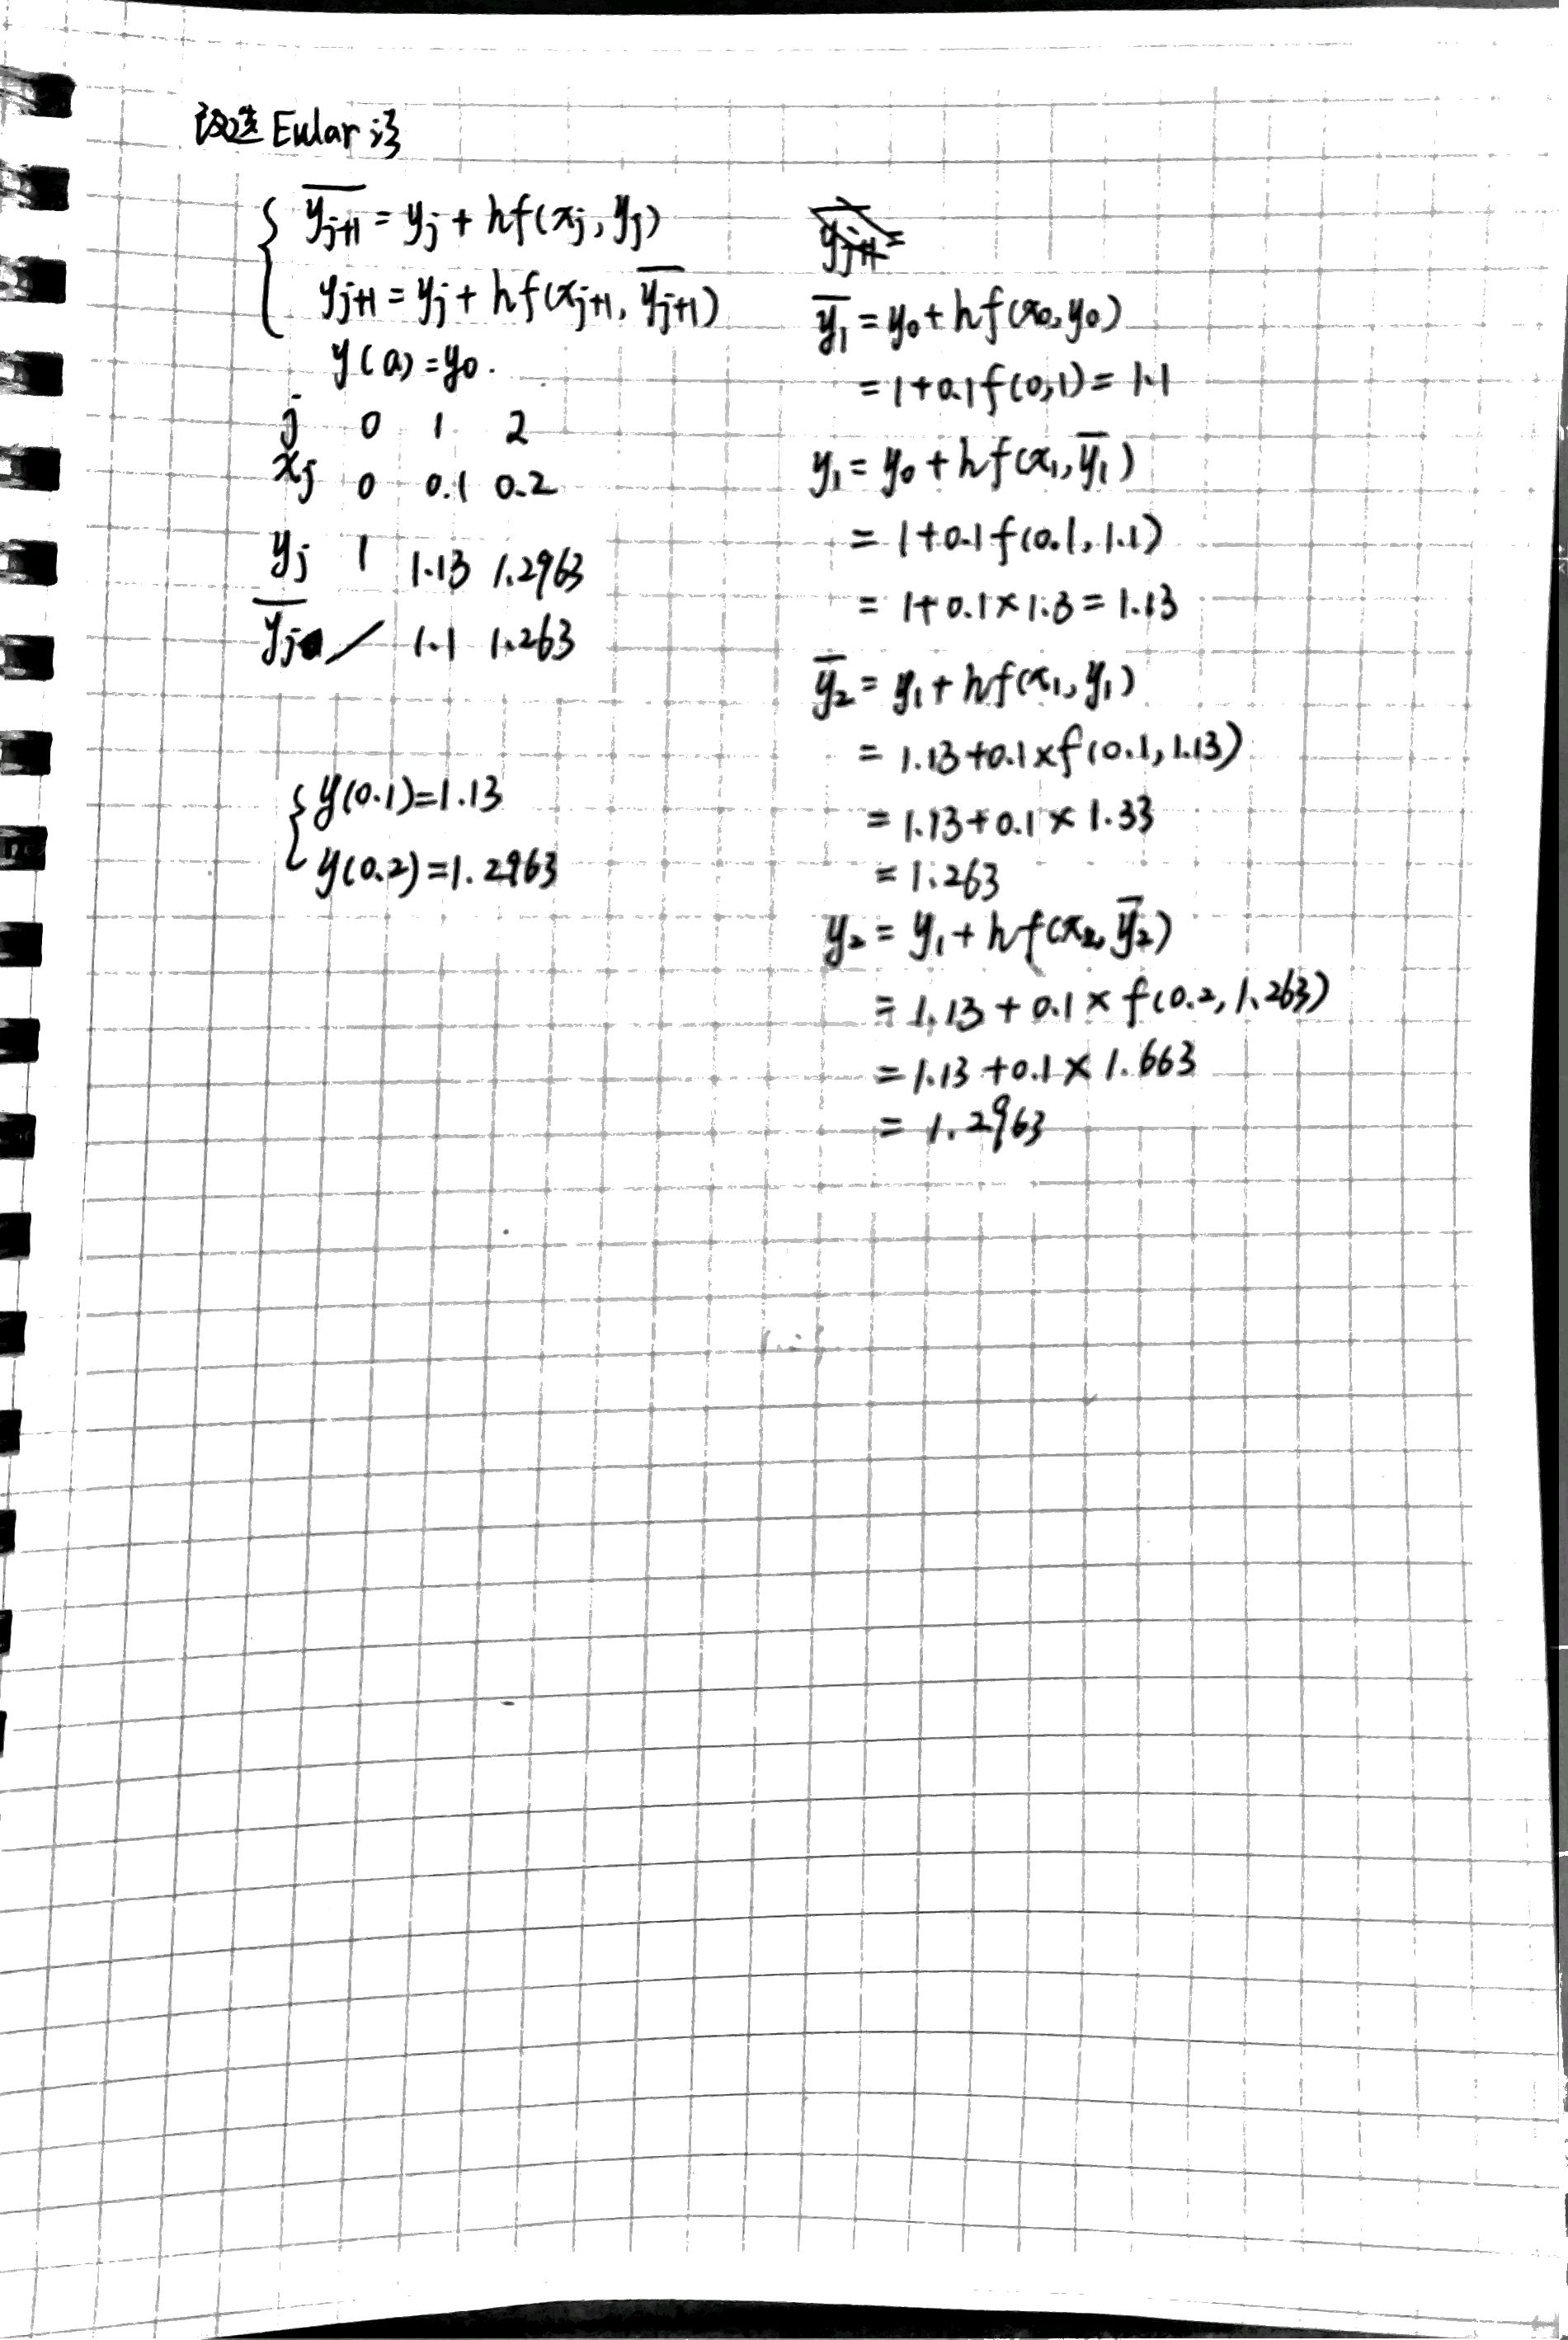 改进Eular法
{ \overline{y_{j+1}} = y_j + hf(x_j, y_j)
y_{j+1} = y_j + hf(x_{j+1}, \overline{y_{j+1}})
y(a) = y_0.
j 0 1 2
x_j 0 0.1 0.2
y_j 1 1.13 1.2963
\overline{y_j} / 1.1 1.263
{ y(0.1)=1.13
y(0.2)=1.2963
\overline{y_{j+1}} =
\overline{y_1} = y_0 + hf(x_0, y_0)
= 1+0.1f(0,1) = 1.1
y_1 = y_0 + hf(x_1, \overline{y_1})
= 1+0.1f(0.1, 1.1)
= 1+0.1×1.3 = 1.13
\overline{y_2} = y_1 + hf(x_1, y_1)
= 1.13+0.1×f(0.1, 1.13)
= 1.13+0.1×1.33
= 1.263
y_2 = y_1 + hf(x_2, \overline{y_2})
= 1.13+0.1×f(0.2, 1.263)
= 1.13+0.1×1.663
= 1.2963